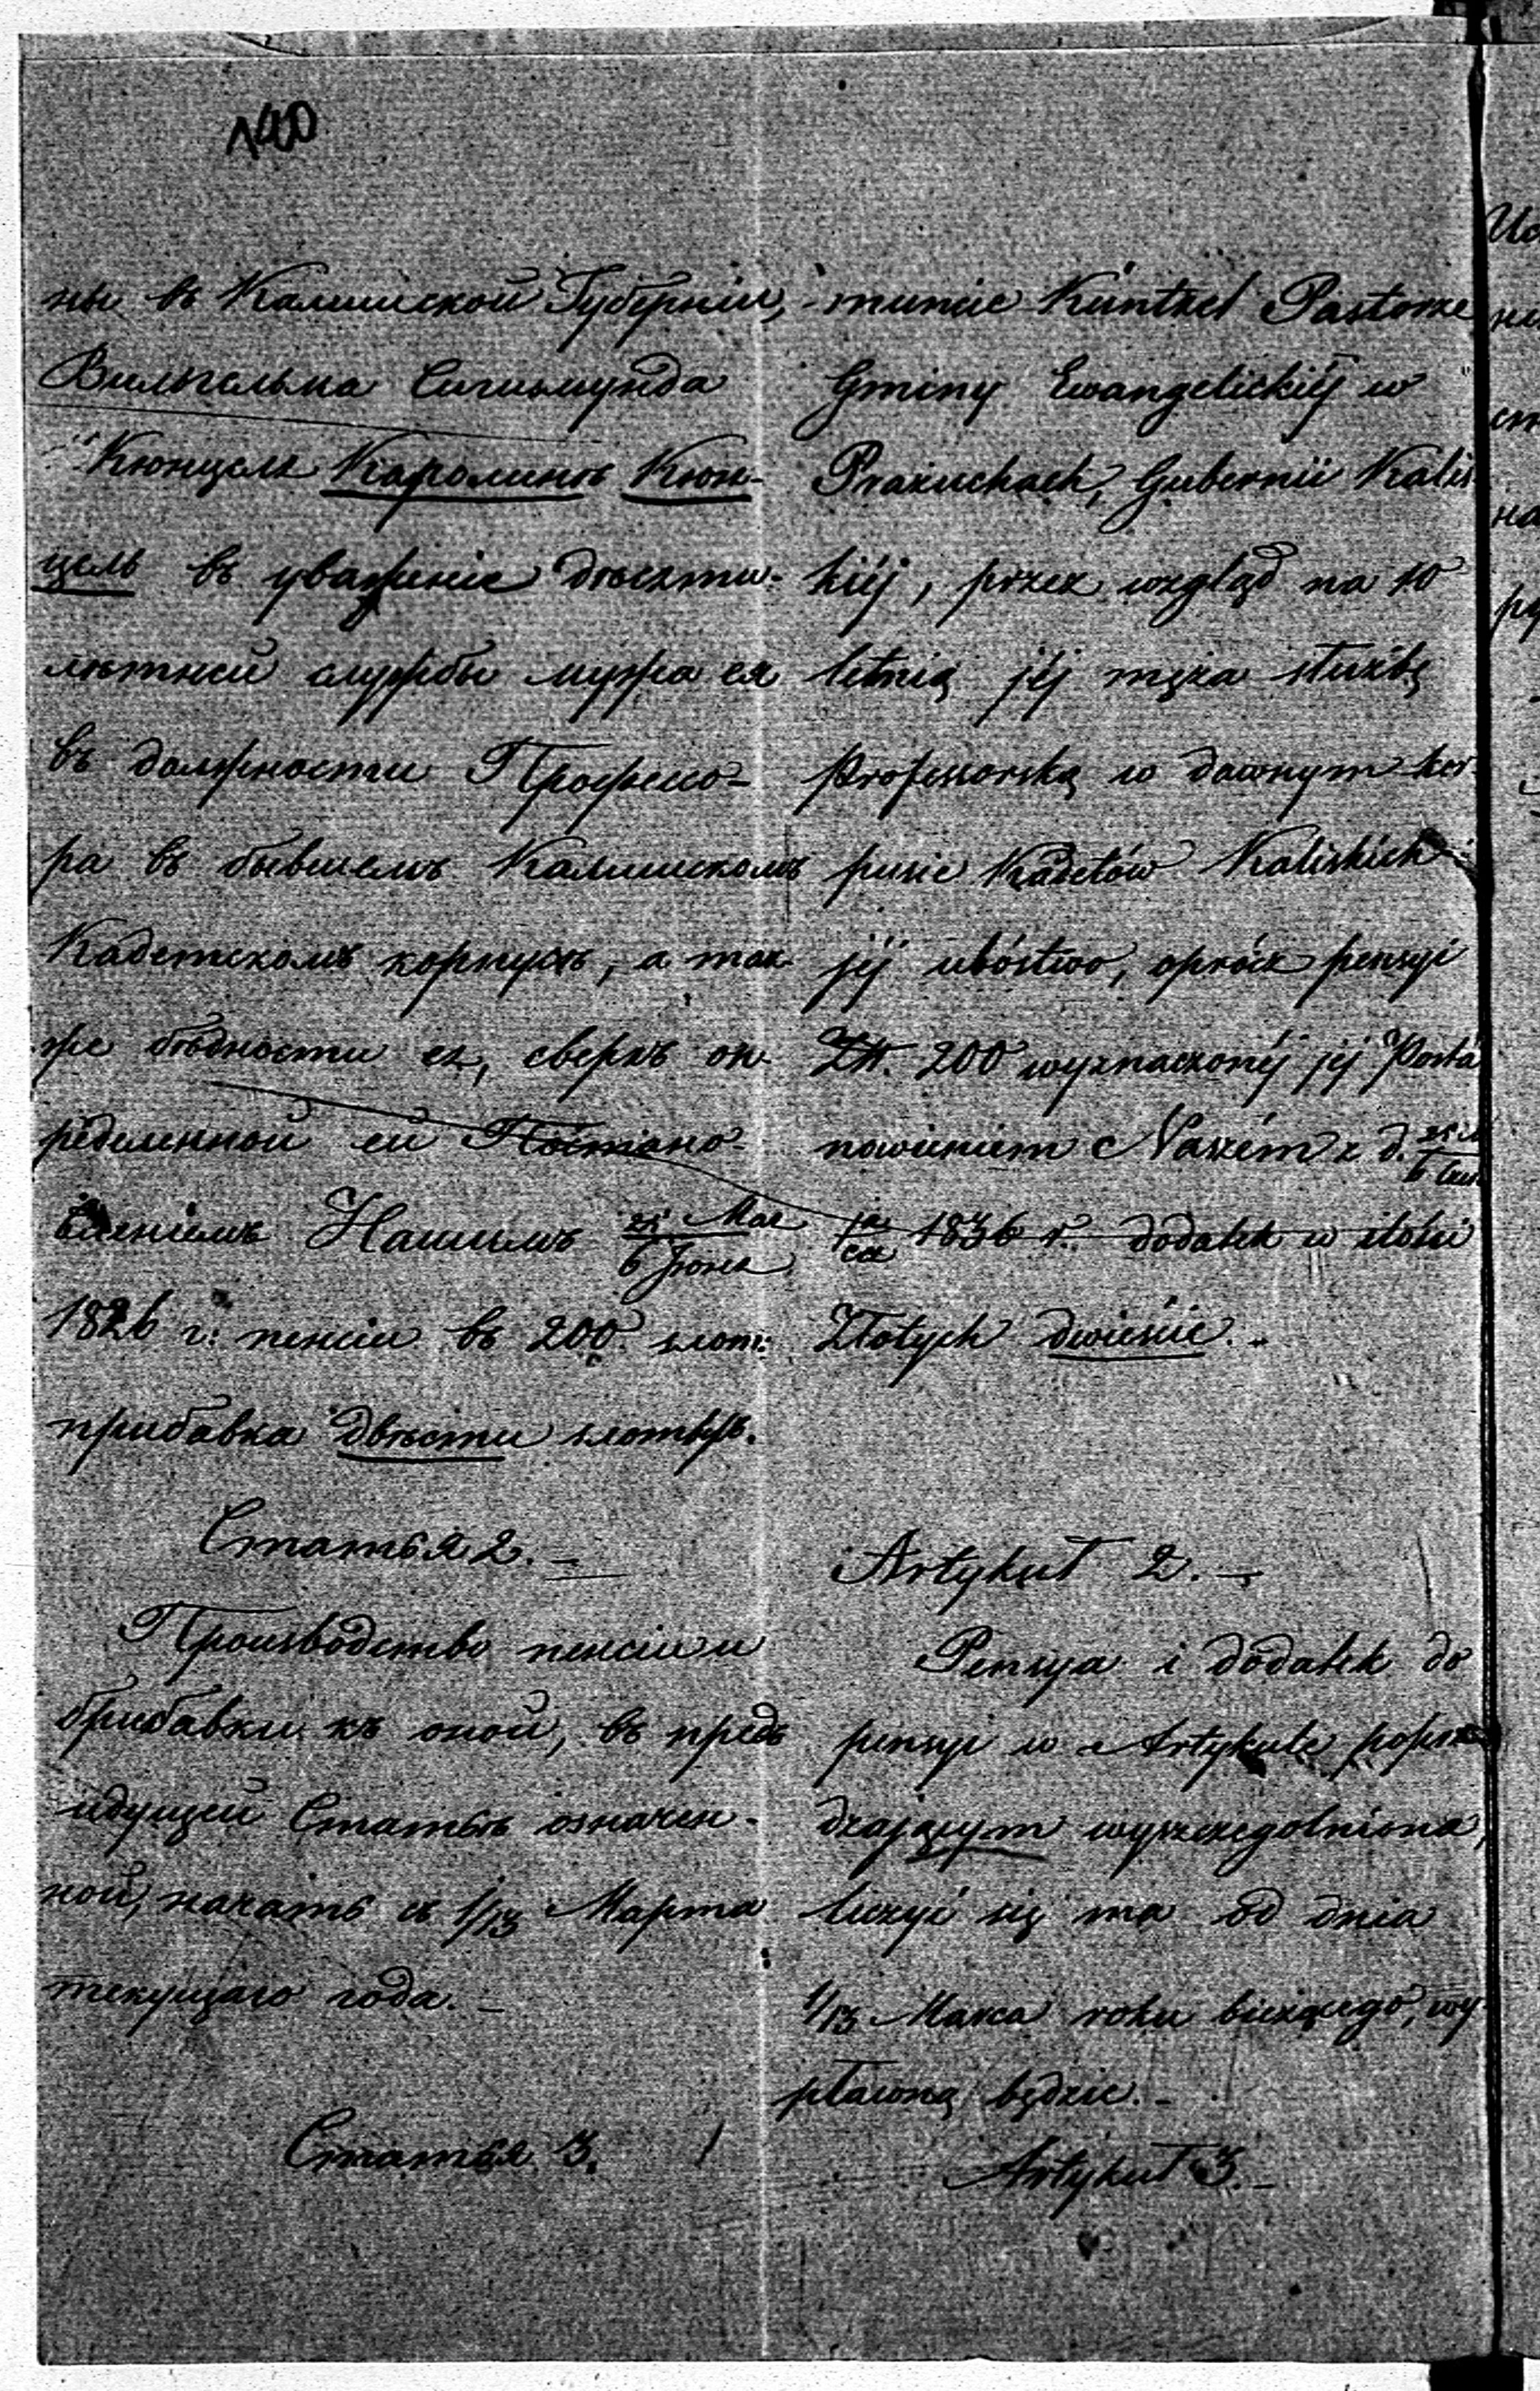 140
ны въ Калишской Губерніи,
Вильгельма Сигизмунда
Кюнцеля Каролинѣ Кюн-
цель въ уваженіе десяти-
лѣтней службы мужа ея
въ должности Профессо-
ра въ бывшемъ Калишскомъ
Кадетскомъ корпусѣ, а так-
же бѣдности ея, сверхъ оп-
ределенной ей Постано-
вленіемъ Нашимъ 25 Мая / 6 Іюня
1826 г: пенсіи въ 200 злот:
прибавка двѣсти злотыхъ.
Статья 2. –
Производство пенсіи и
прибавки къ оной, въ предъ
идущей Статьѣ означен-
ной, начать съ 1/13 Марта
текущаго года. –
Статья 3.
muncie Küntzel Pastorze
Gminy Ewangelickiéj w
Prażuchach, Gubernii Kalis
kiéj, przez wzgląd na 10
letnią jéj męża służbę
Professorską w dawnym kor-
pusie Kadetów Kaliskich i
jéj ubóstwo, oprócz pensyi
Zł. 200 wyznaczonéj jéj Posta
nowieniem Naszém z d. 25
1836 r. dodatek w ilości
Złotych dwieście. –
Artykuł 2. –
Pensya i dodatek do
pensyi w Artykule poprze
dzającym wyszczególniona,
liczyć się ma od dnia
1/13 Marca roku bieżącego, wy-
płacona będzie. –
Artykuł 3. –